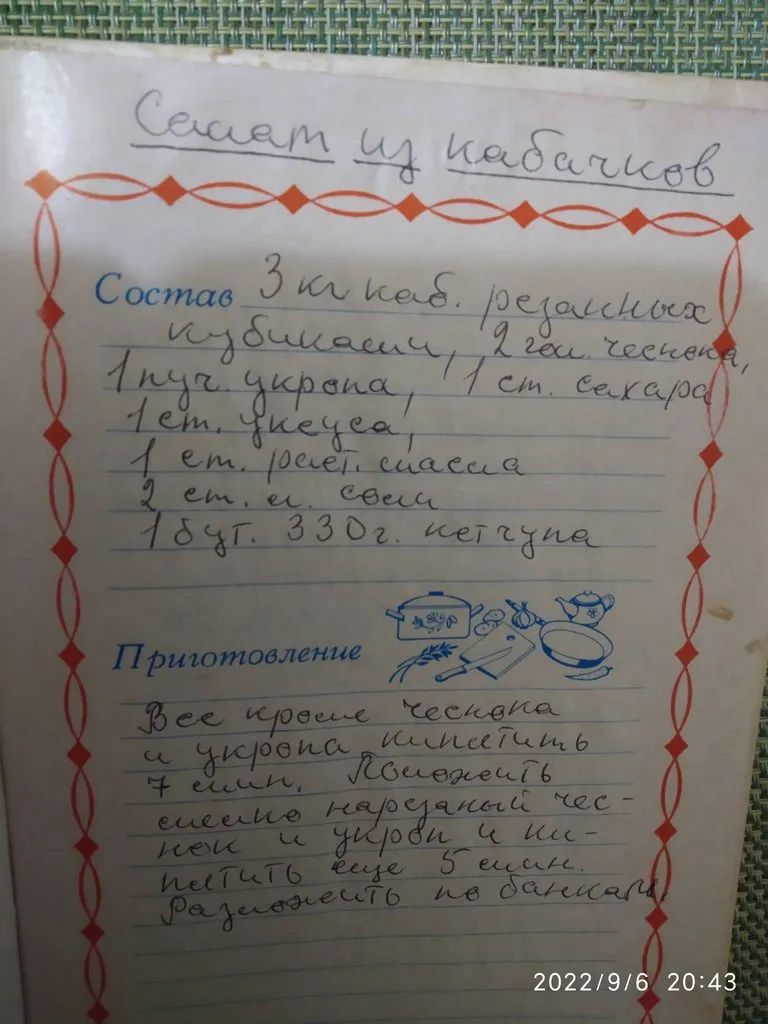 Салат из кабачков
Состав 3 кг каб. резанных
кубиками, 2 гол. чеснока,
1 пуч. укропа, 1 ст. сахара
1 ст. уксуса,
1 ст. раст. масла
2 ст. л. соли
1 бут. 330 г. кетчупа
Приготовление
Все кроме чеснока
и укропа кипятить
7 мин. Положить
мелко нарезаный чес-
нок и укроп и ки-
пятить еще 5 мин.
Разложить по банкам.
2022/9/6 20:43